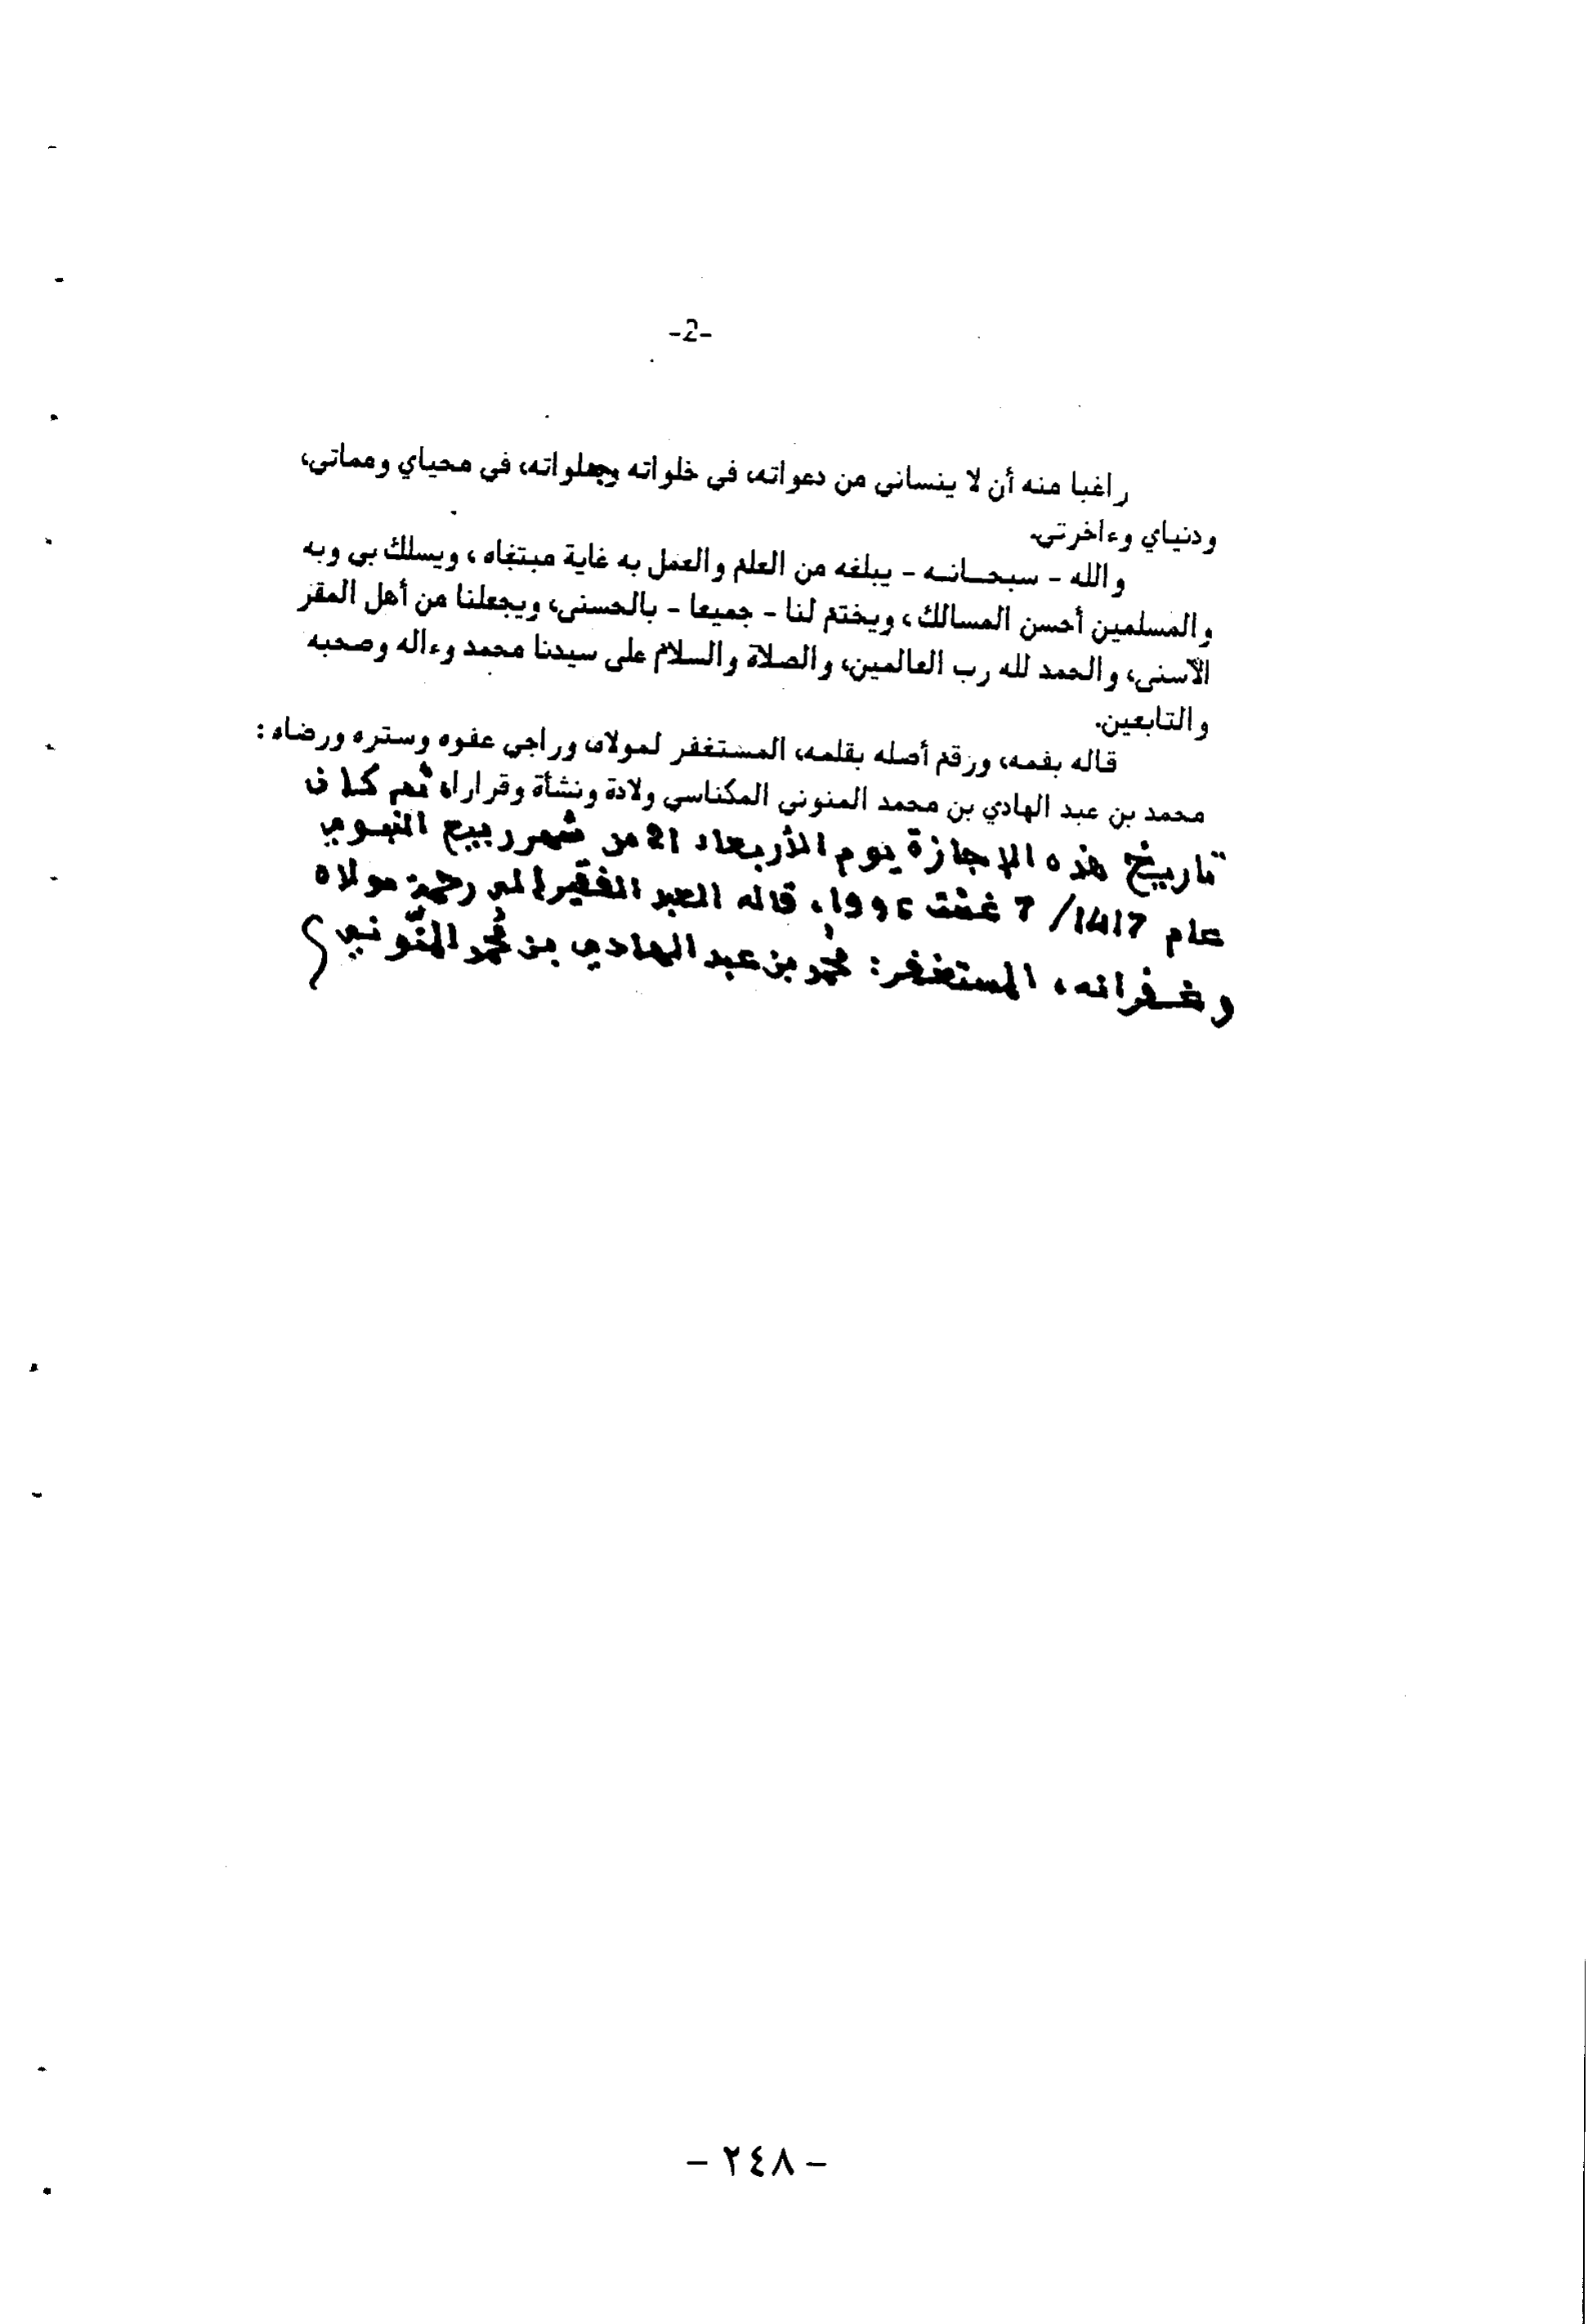 -2-
راغبا منه أن لا ينساني من دعواته، في خلواته وجلواته، في محياي ومماتي،
ودنياي وءاخرتي.
والله - سبحـانـه - يبلغه من العلم والعمل به غاية مبتغاه، ويسلك بي وبه
والمسلمين أحسن المسالك، ويختم لنا - جميعا - بالحسنى، ويجعلنا من أهل المقر
الأسنى، والحمد لله رب العالمين، والصلاة والسلام على سيدنا محمد وءاله وصحبه
والتابعين.
قاله بفمه، ورقم أصله بقلمه، المستغفر لمولاه، وراجي عفوه وستره ورضاه :
محمد بن عبد الهادي بن محمد المنوني المكناسي ولادة ونشأة وقرارا، ثم كان
تاريخ هذه الإجازة يوم الأربعاء 21 من شهر ربيع النبوي
عام 1417/ 7 غشت 1996، قاله العبد الفقير إلى رحمة مولاه
وغفرانه، المستغفر: محمد بن عبد الهادي بن محمد المنّوني
- ٢٤٨ -